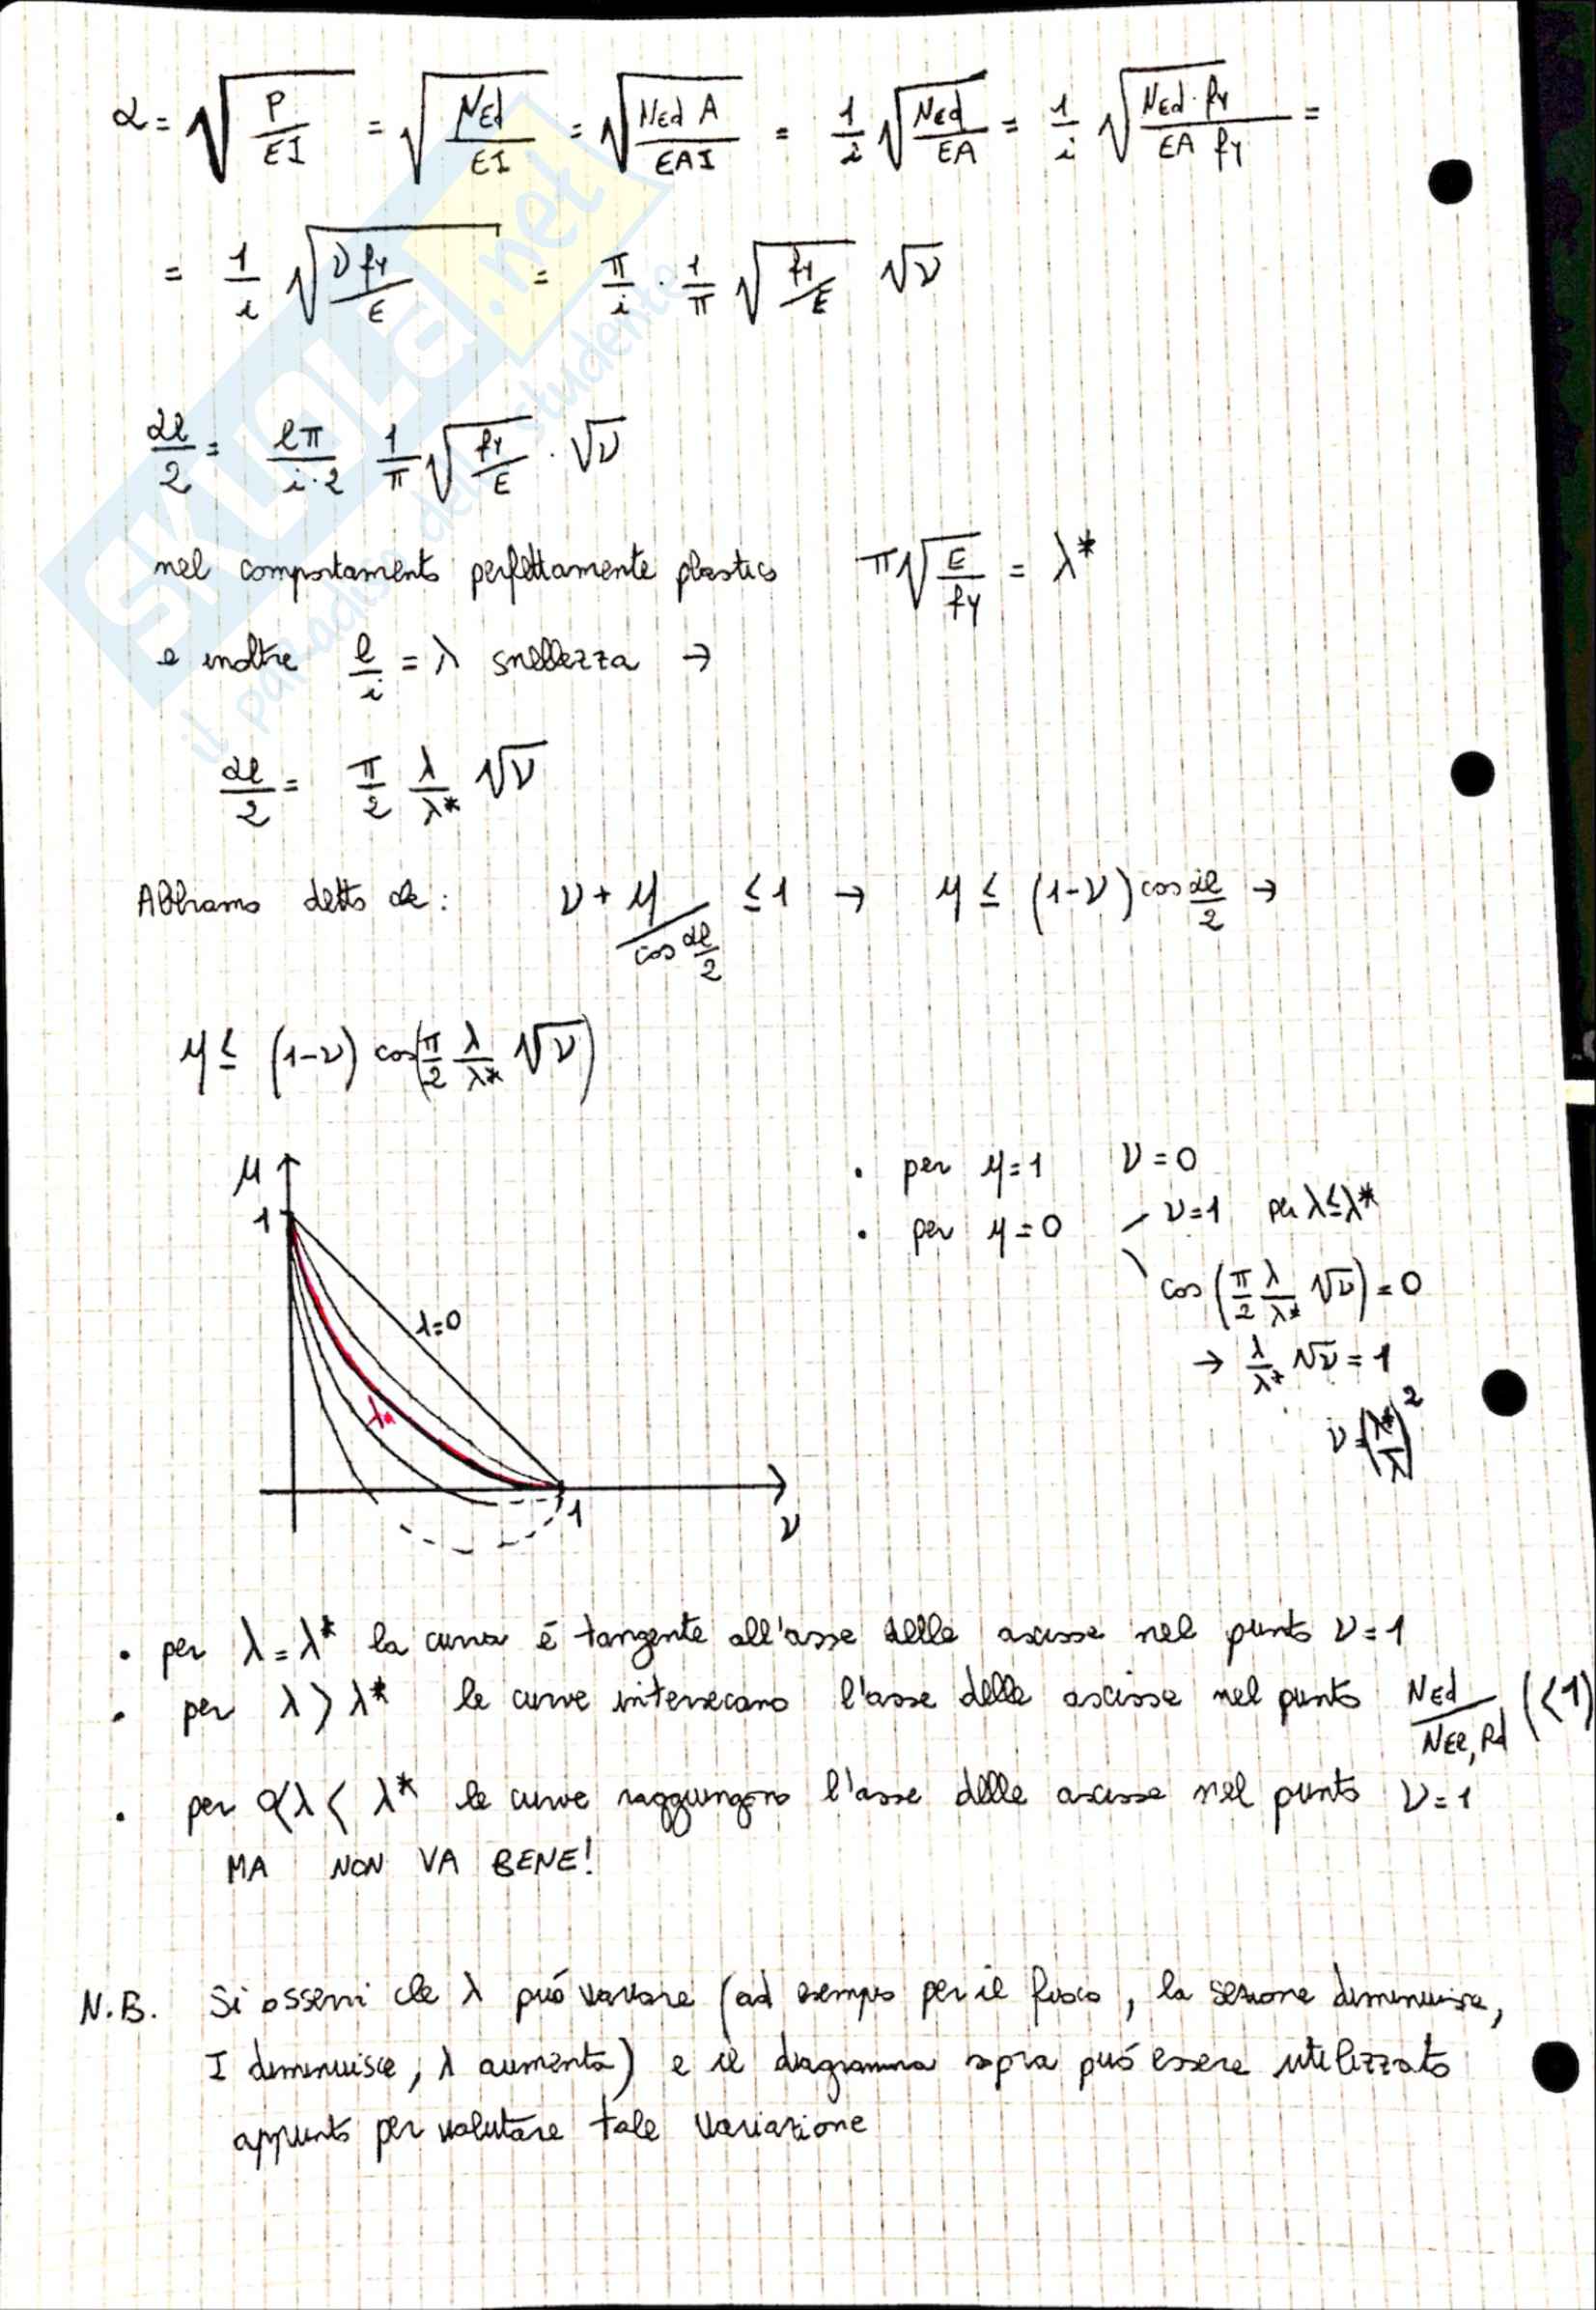 α = √(P/EI) = √(NEd/EI) = √(NEd A/EAI) = 1/i √(NEd/EA) = 1/i √(NEd·fy/EA fy) =
= 1/i √(ν fy/E) = π/i · 1/π √(fy/E) √ν
αl/2 = lπ/i·2 1/π √(fy/E) · √ν
nel comportamento perfettamente plastico π√(E/fy) = λ*
e inoltre l/i = λ snellezza →
αl/2 = π/2 λ/λ* √ν
Abbiamo detto che: ν + μ/cos αl/2 ≤ 1 → μ ≤ (1-ν) cos αl/2 →
μ ≤ (1-ν) cos(π/2 λ/λ* √ν)
μ
1
λ=0
1
ν
• per μ=1 ν=0
• per μ=0 ν=1 per λ≤λ*
cos(π/2 λ/λ* √ν) = 0
→ λ/λ* √ν = 1
ν=(λ*/λ)²
• per λ=λ* la curva é tangente all'asse delle ascisse nel punto ν=1
• per λ > λ* le curve intersecano l'asse delle ascisse nel punto NEd/NEe,Rd (<1)
• per 0<λ< λ* le curve raggiungono l'asse delle ascisse nel punto ν=1
MA NON VA BENE!
N.B. Si osservi che λ puó variare (ad esempio per il fuoco, la sezione diminuisce,
I diminuisce, λ aumenta) e il diagramma sopra puó essere utilizzato
appunto per valutare tale variazione
SKUOLA.net
il paradiso dello studente